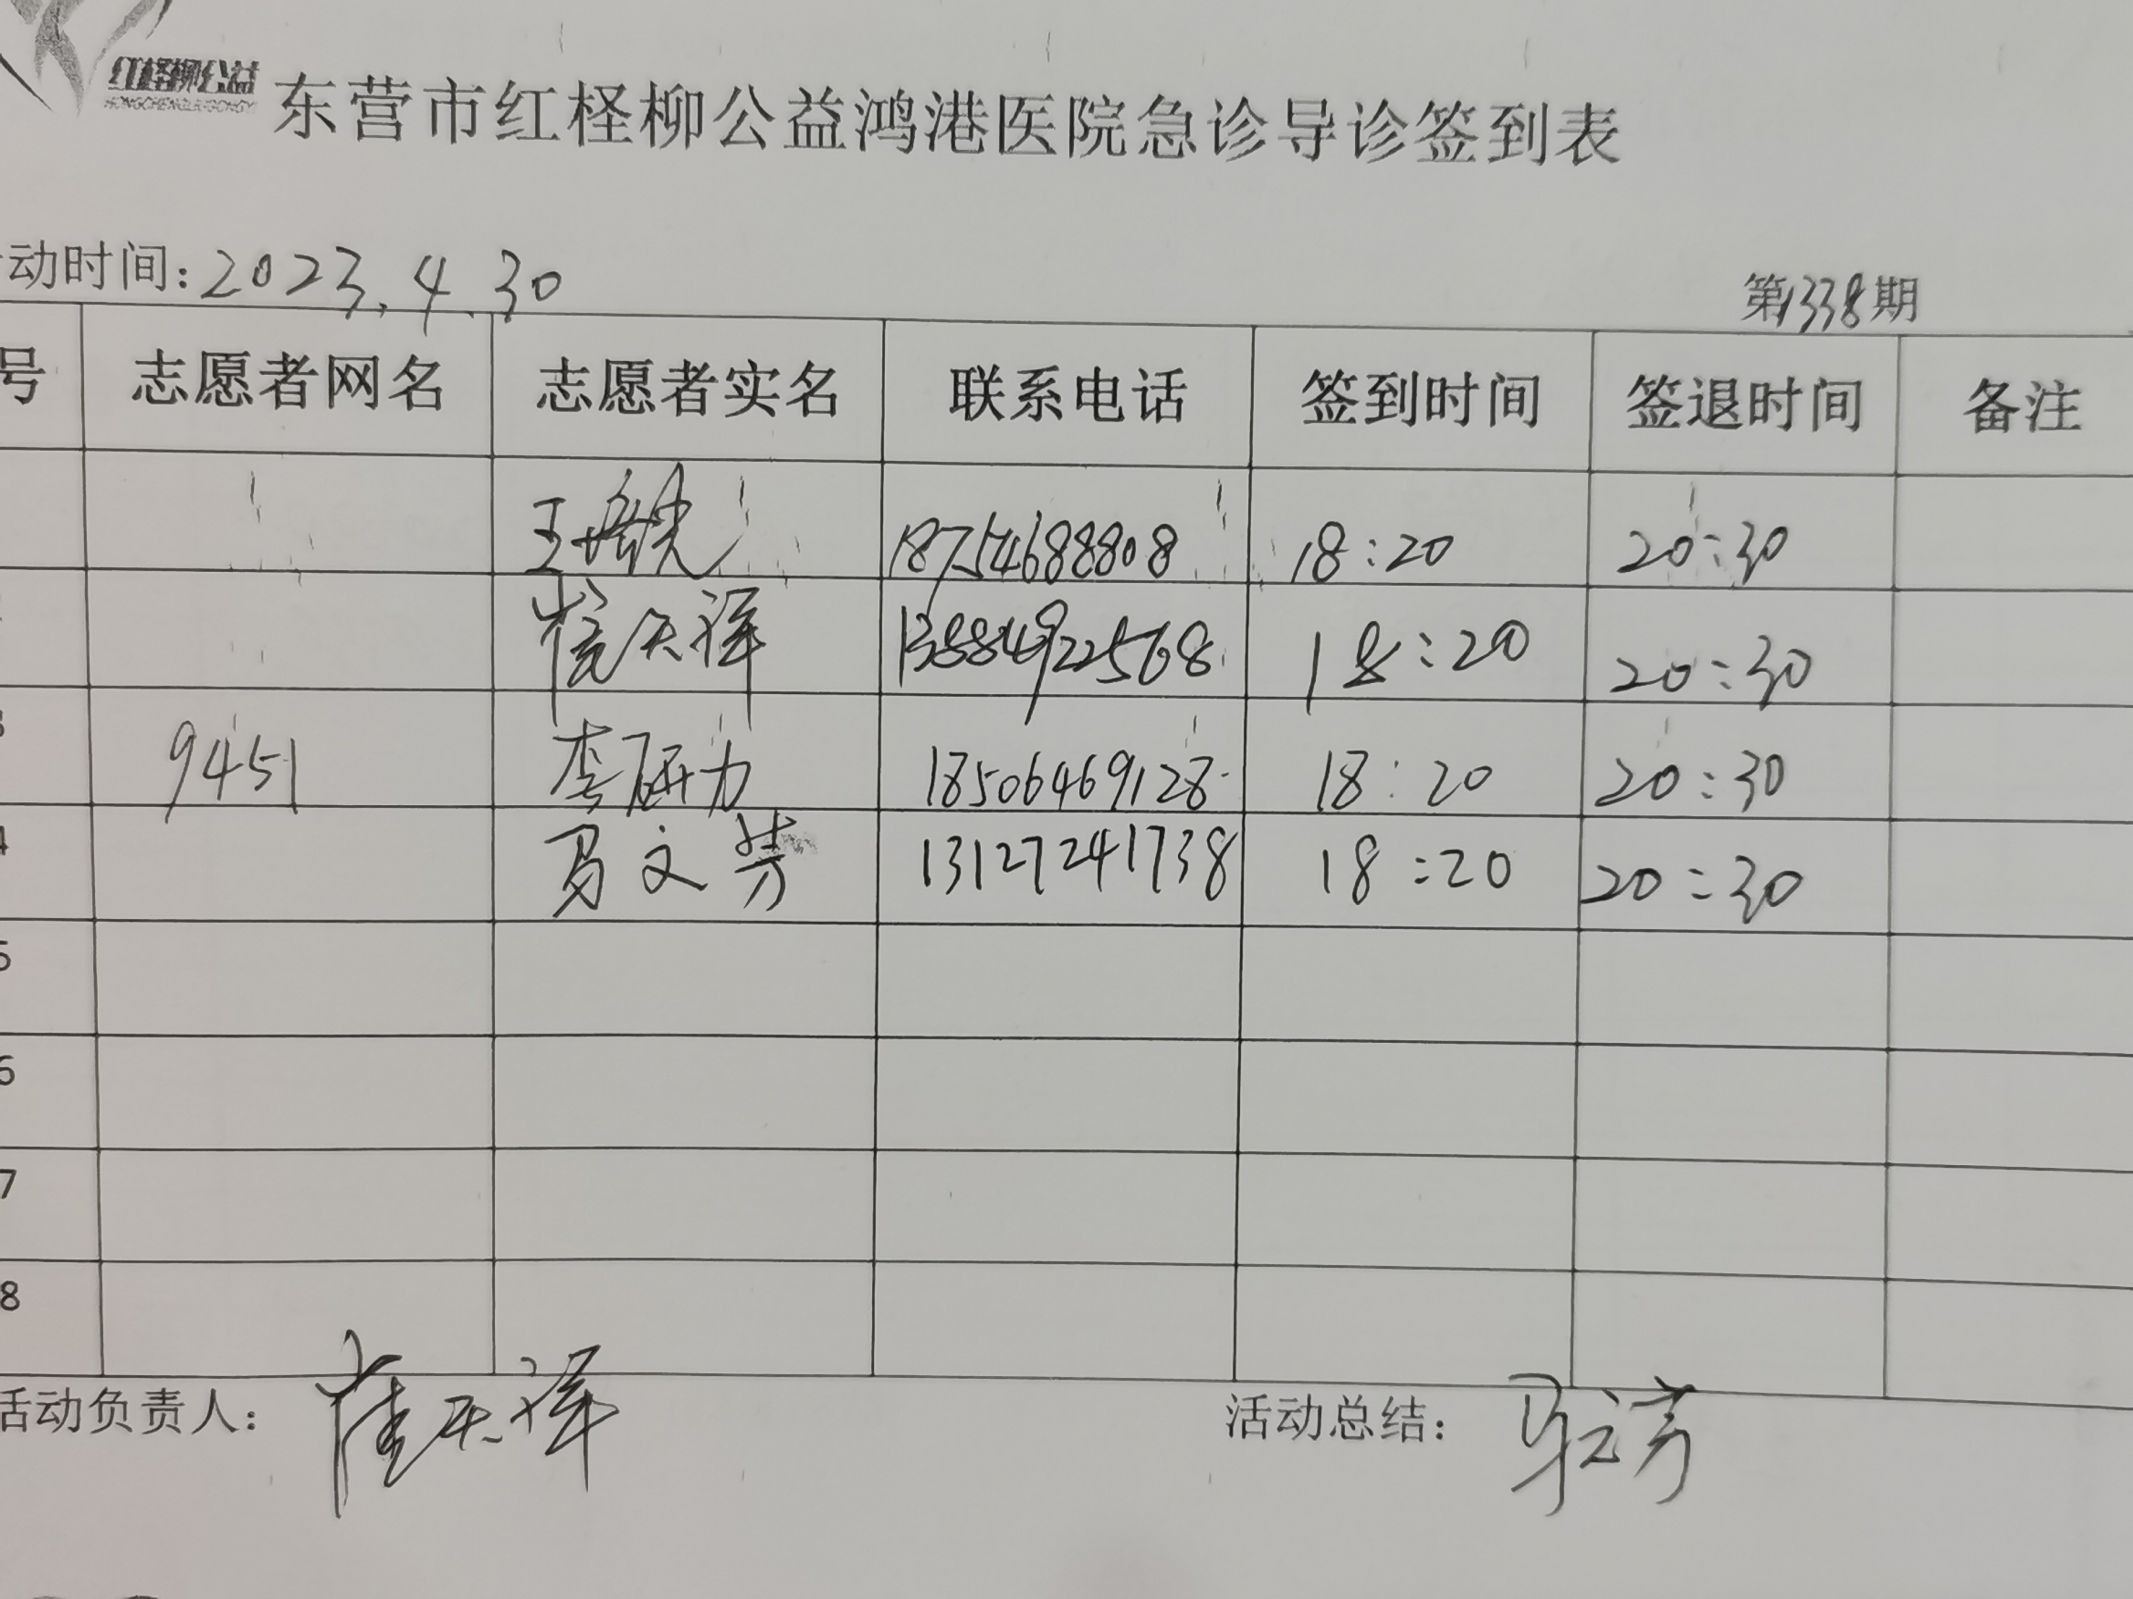 红柽柳公益
HONGCHENGLIUGONGYI
东营市红柽柳公益鸿港医院急诊导诊签到表
动时间:2023.4.30 第1338期
号 志愿者网名 志愿者实名 联系电话 签到时间 签退时间 备注
王 18754688808 18:20 20:30
天祥 13884922568 18:20 20:30
3 9451 李研力 18506469128 18:20 20:30
4 易文芳 13127241738 18:20 20:30
5
6
7
8
活动负责人: 崔天祥 活动总结: